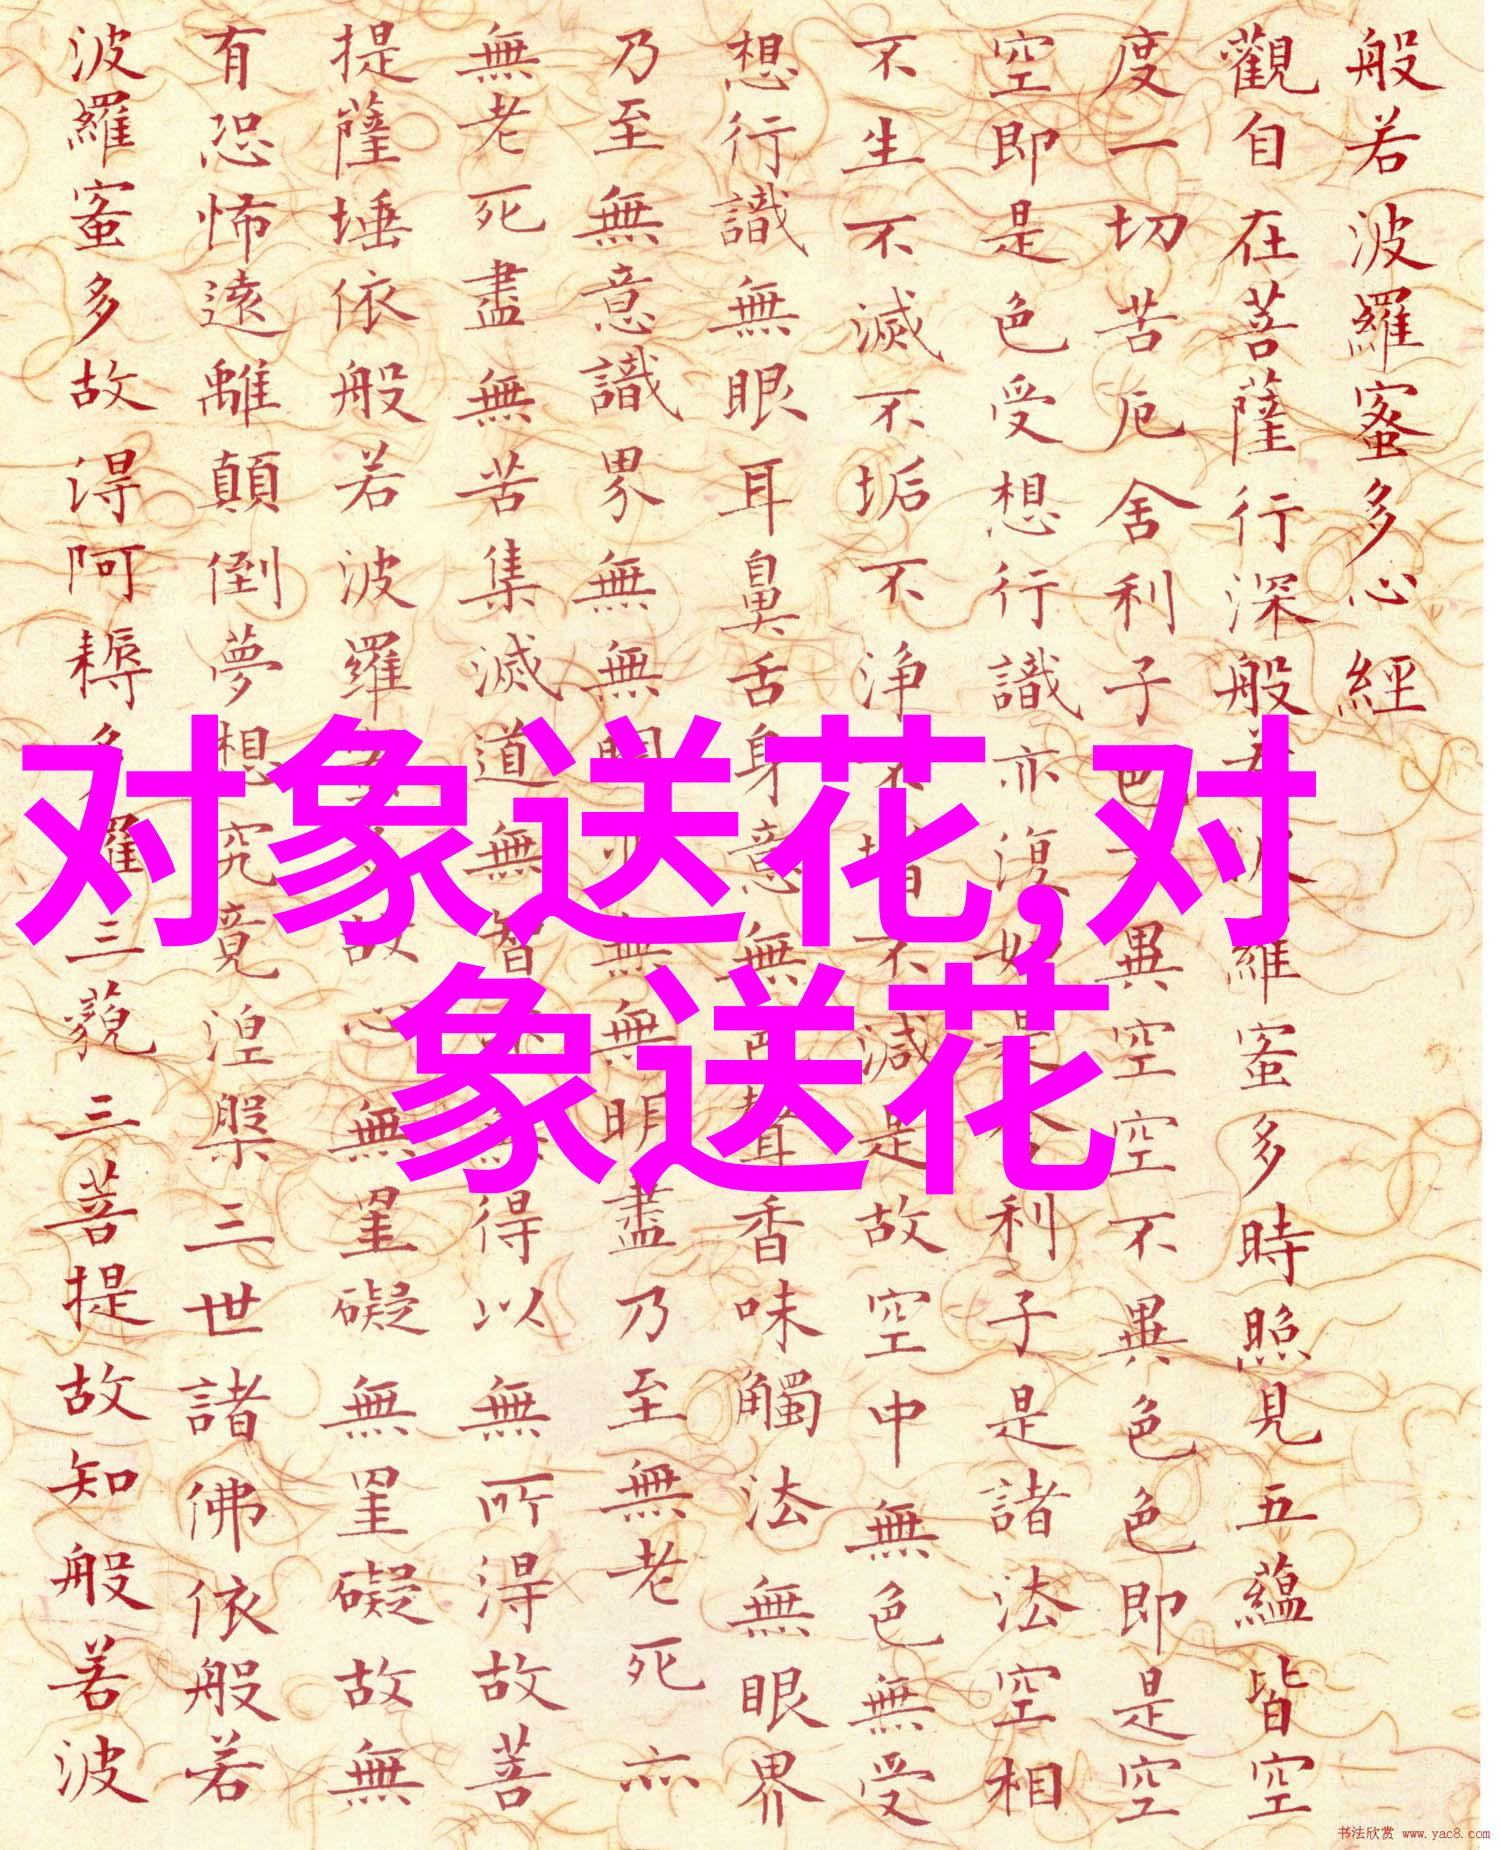 般若波羅蜜多心經
觀自在菩薩行深般若波羅蜜多時照見五蘊皆空
度一切苦厄舍利子色不異空空不異色色即是空
空即是色受想行識亦復如是舍利子是諸法空相
不生不滅不垢不淨不增不減是故空中無色無受
想行識無眼耳鼻舌身意無色聲香味觸法無眼界
乃至無意識界無無明亦無無明盡乃至無老死亦
無老死盡無苦集滅道無智亦無得以無所得故菩
提薩埵依般若波羅蜜多故心無罣礙無罣礙故無
有恐怖遠離顛倒夢想究竟涅槃三世諸佛依般若
波羅蜜多故得阿耨多羅三藐三菩提故知般若波
对象送花,对
象送花
书法欣赏 www.yac8.com